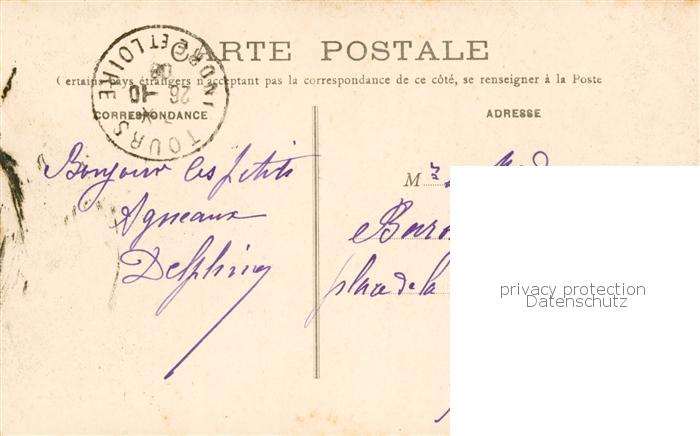 CARTE POSTALE
Certains pays étrangers n'acceptant pas la correspondance de ce côté, se renseigner à la Poste
TOURS INDRE ET LOIRE
26 -10
08
CORRESPONDANCE
ADRESSE
Bonjour les petits
Agneaux
Delphine
M
place de la
privacy protection
Datenschutz